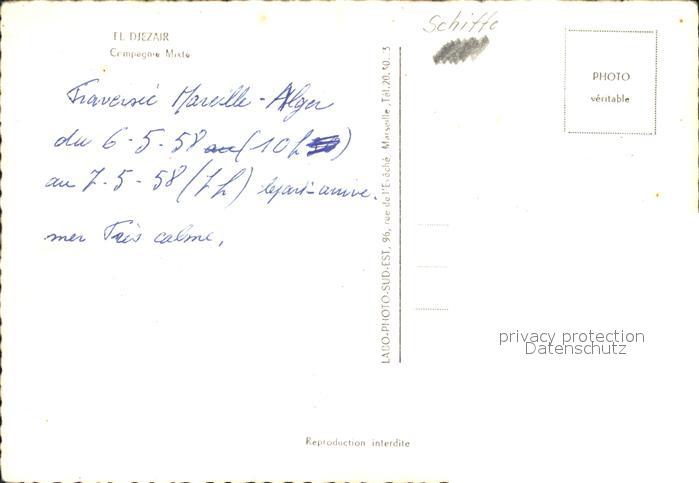 EL DJEZAIR
Compagnie Mixte
Schiffe
PHOTO
véritable
Traversée Marseille - Alger
du 6-5-58 au (10 h)
au 7-5-58 (7 h) départ-arrivée.
mer Très calme.
LABO-PHOTO-SUD-EST, 96, rue de l'Evêché, Marseille, Tél. 20.50.
privacy protection
Datenschutz
Reproduction interdite